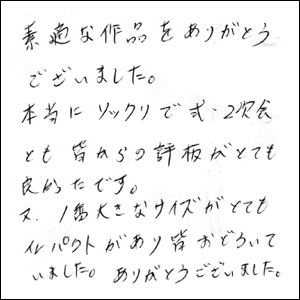 素適な作品をありがとう
ございました。
本当にソックリで式・2次会
とも皆からの評板がとても
良かったです。
又、1番大きなサイズがとても
インパクトがあり皆おどろいて
いました。ありがとうございました。